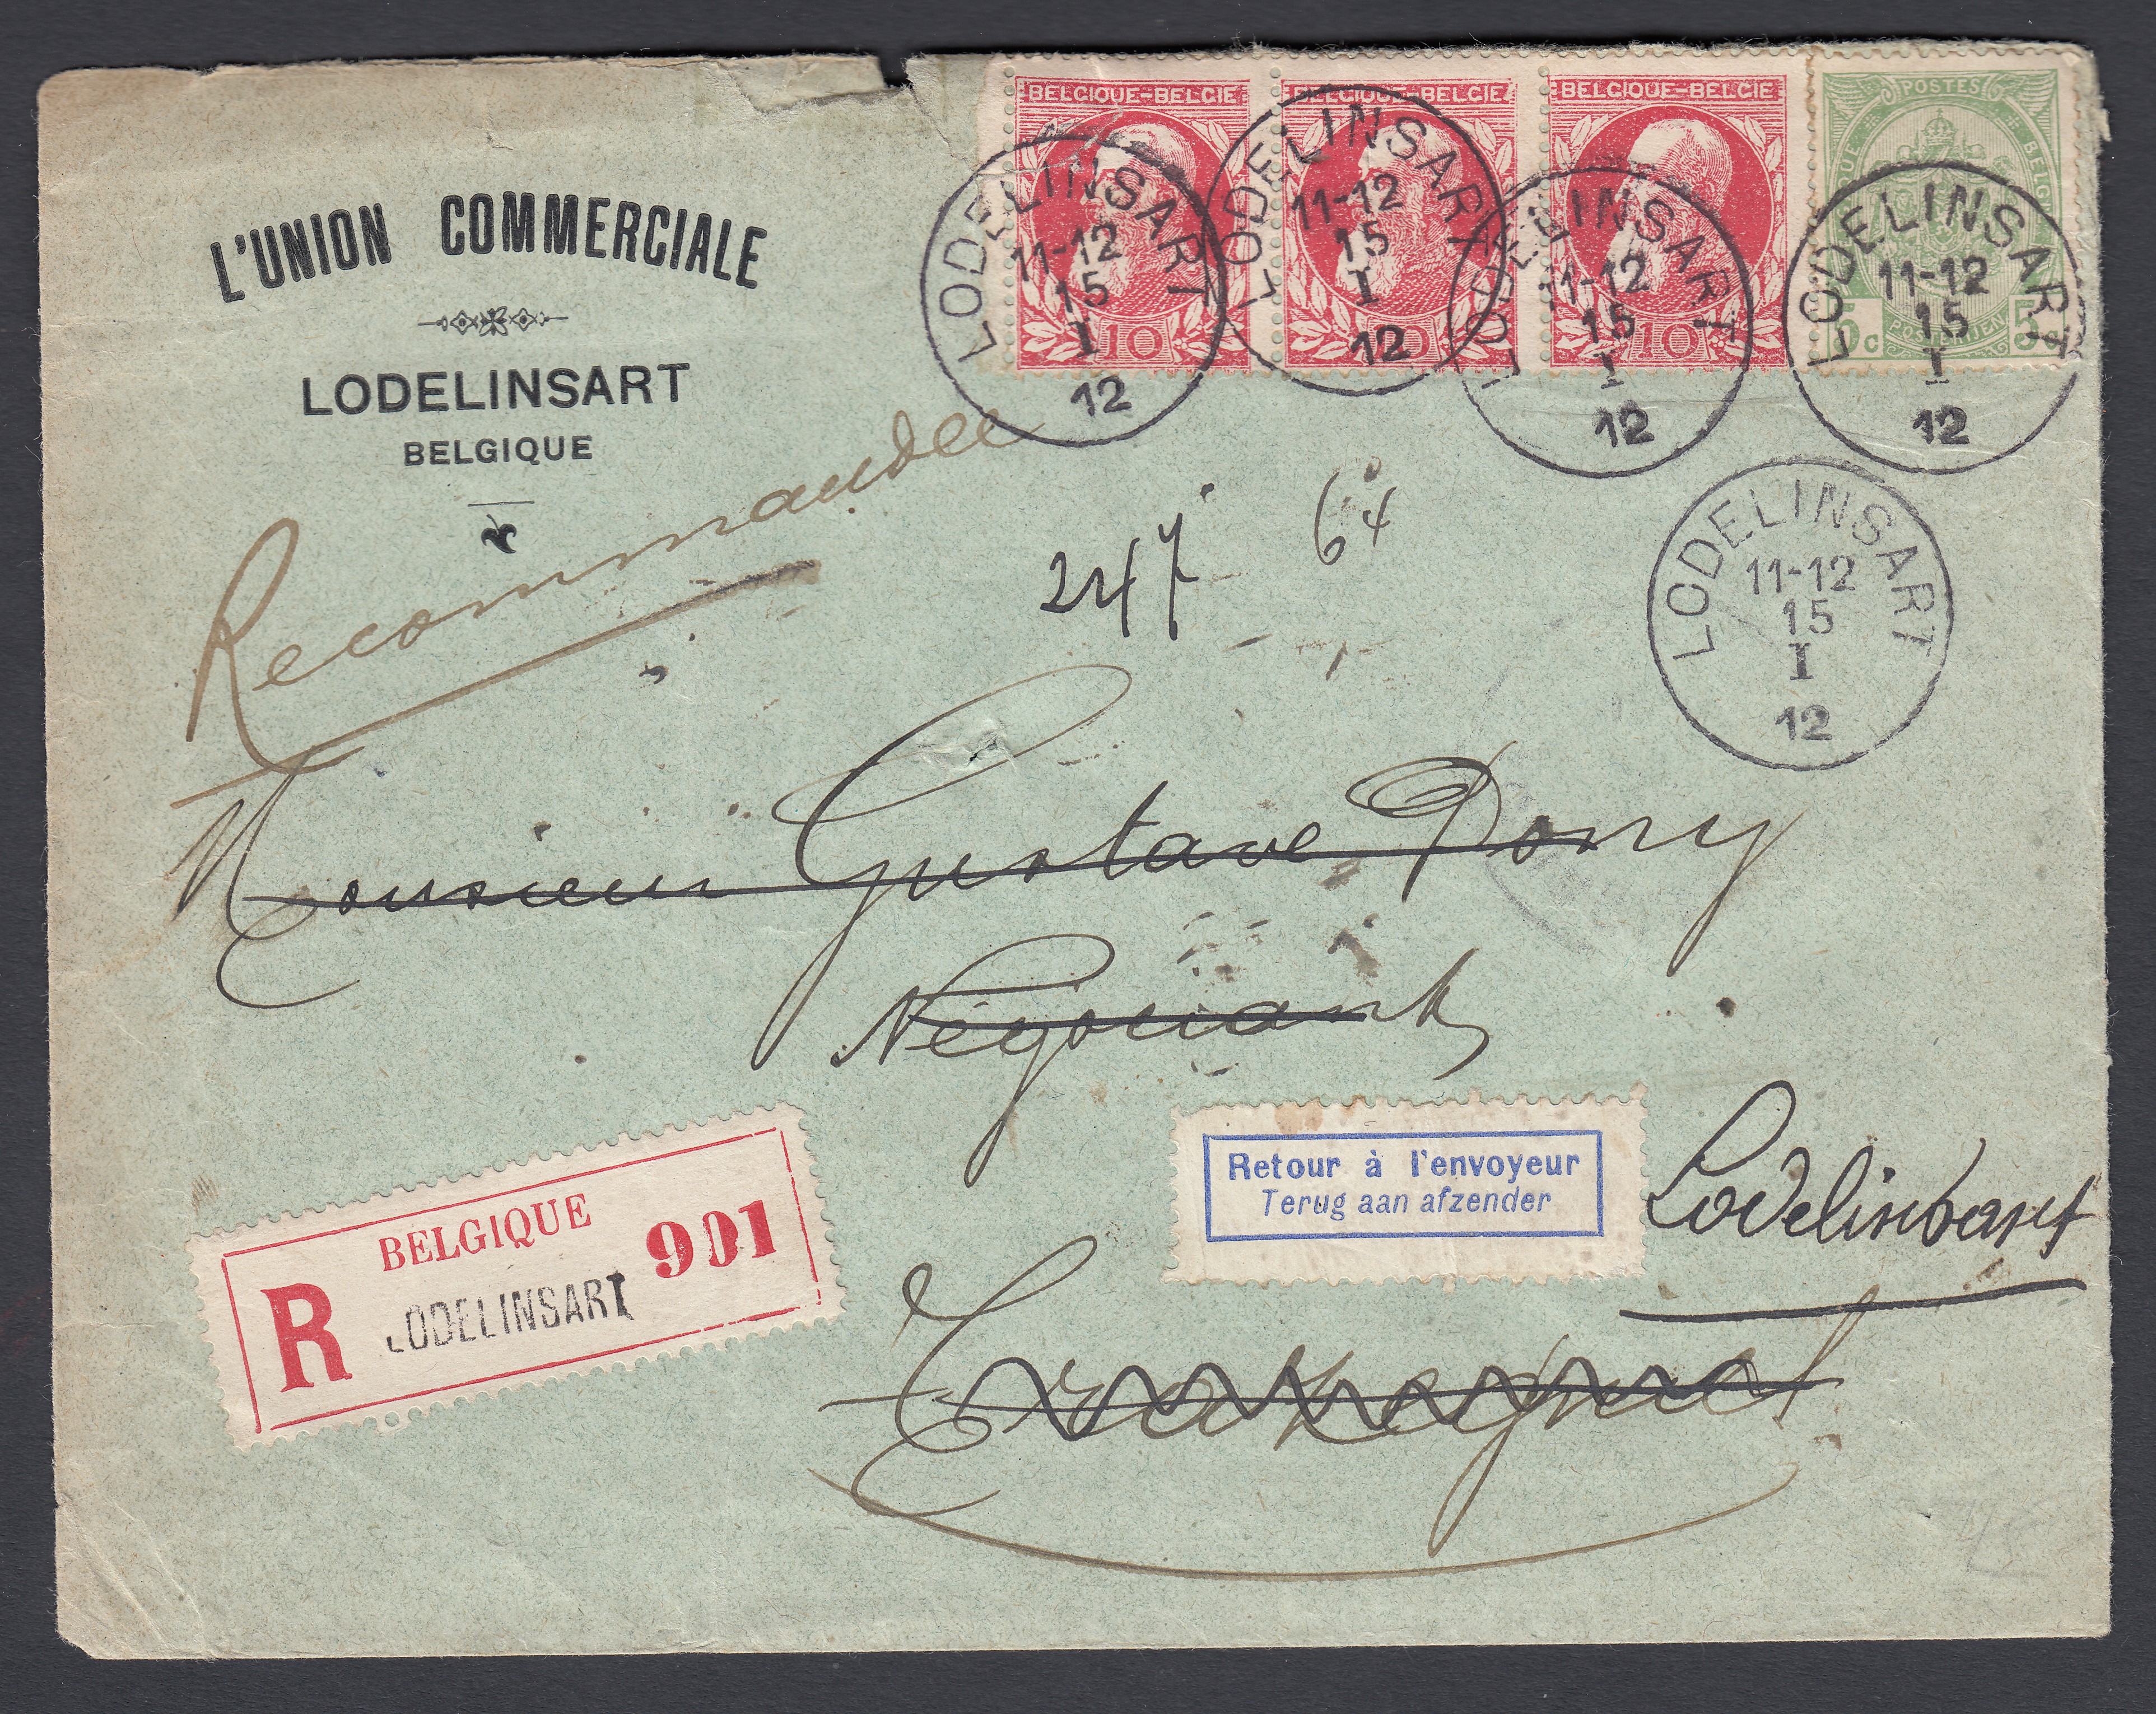 L'UNION COMMERCIALE
LODELINSART
BELGIQUE
BELGIQUE-BELGIE
10
BELGIQUE-BELGIE
10
BELGIQUE-BELGIE
10
POSTES
5c
5
LODELINSART
11-12
15
I
12
LODELINSART
11-12
15
I
12
LODELINSART
11-12
15
I
12
LODELINSART
11-12
15
I
12
LODELINSART
11-12
15
I
12
Recommandée
247
Monsieur Gustave Dony
Négociant
BELGIQUE
R
901
LODELINSART
Retour à l'envoyeur
Terug aan afzender
Lodelinsart